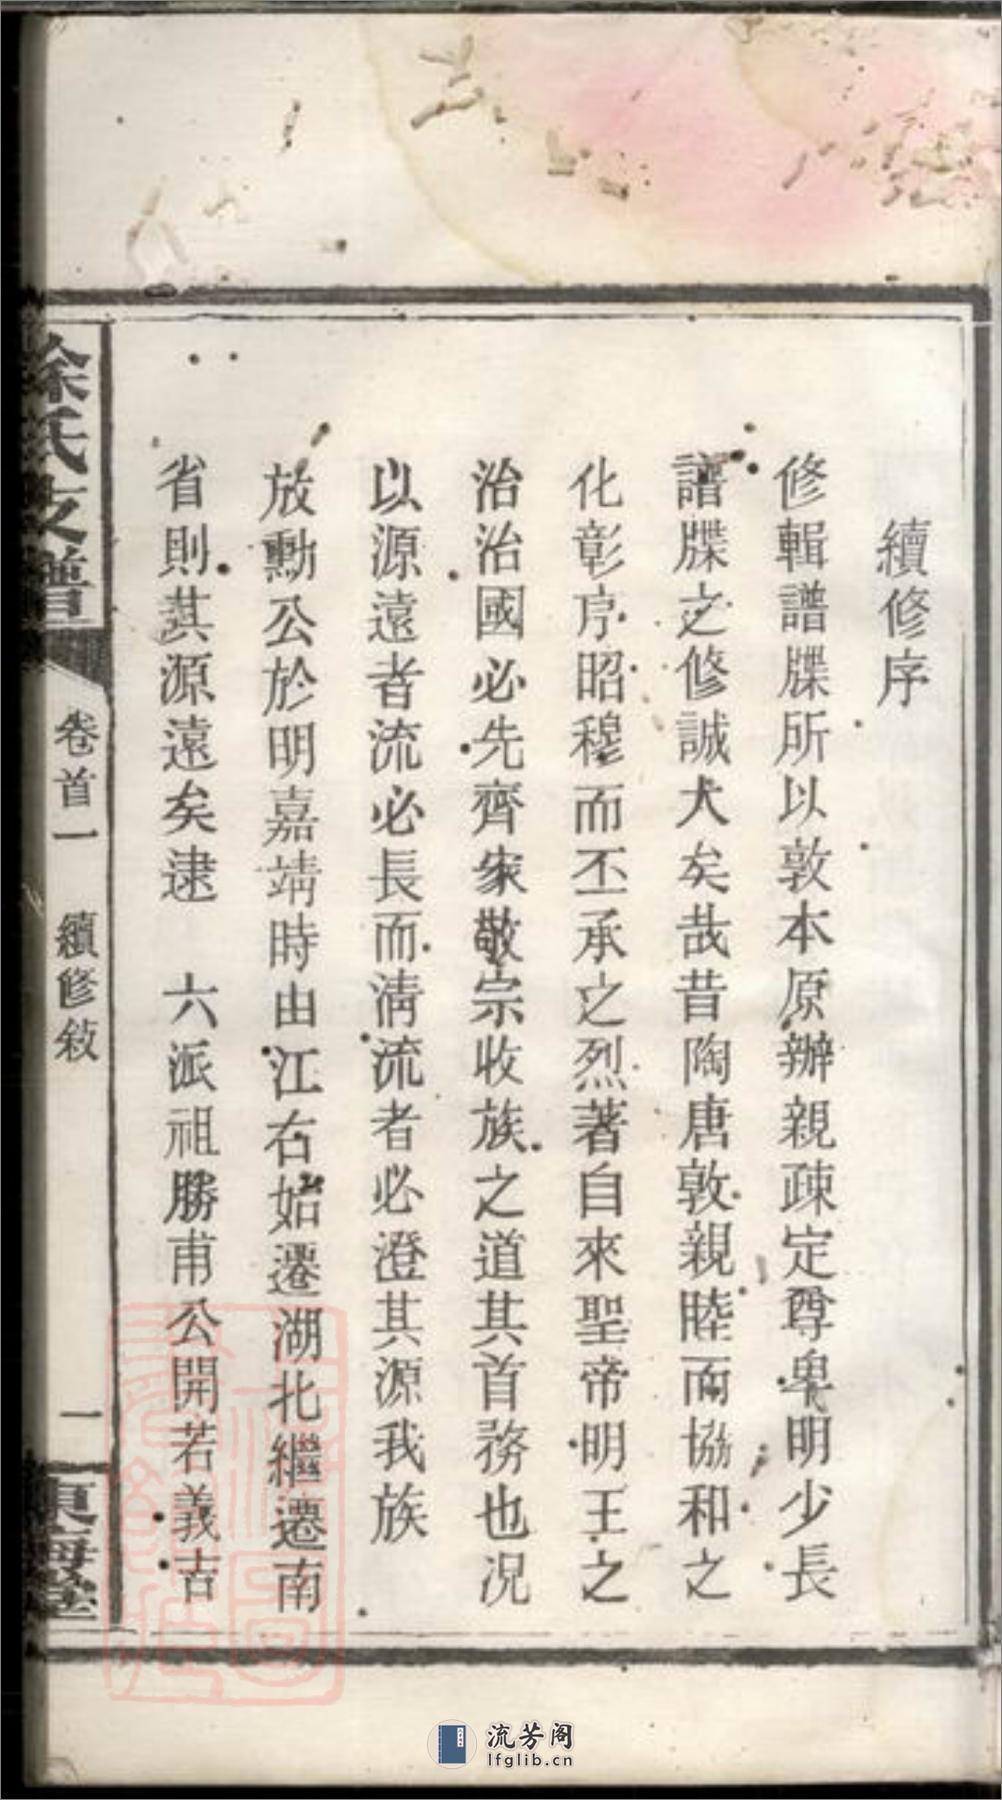 續修序
修輯譜牒所以敦本原辦親疎定尊卑明少長
譜牒之修誠大矣哉昔陶唐敦親睦而協和之
化彰序昭穆而丕承之烈著自來聖帝明王之
治治國必先齊家敬宗收族之道其首務也况
以源遠者流必長而淸流者必澄其源我族
放勳公於明嘉靖時由江右始遷湖北繼遷南
省則其源遠矣逮　六派祖勝甫公開若義吉
徐氏支譜
卷首一　續修敍
一
東海堂
流芳阁
lfglib.cn